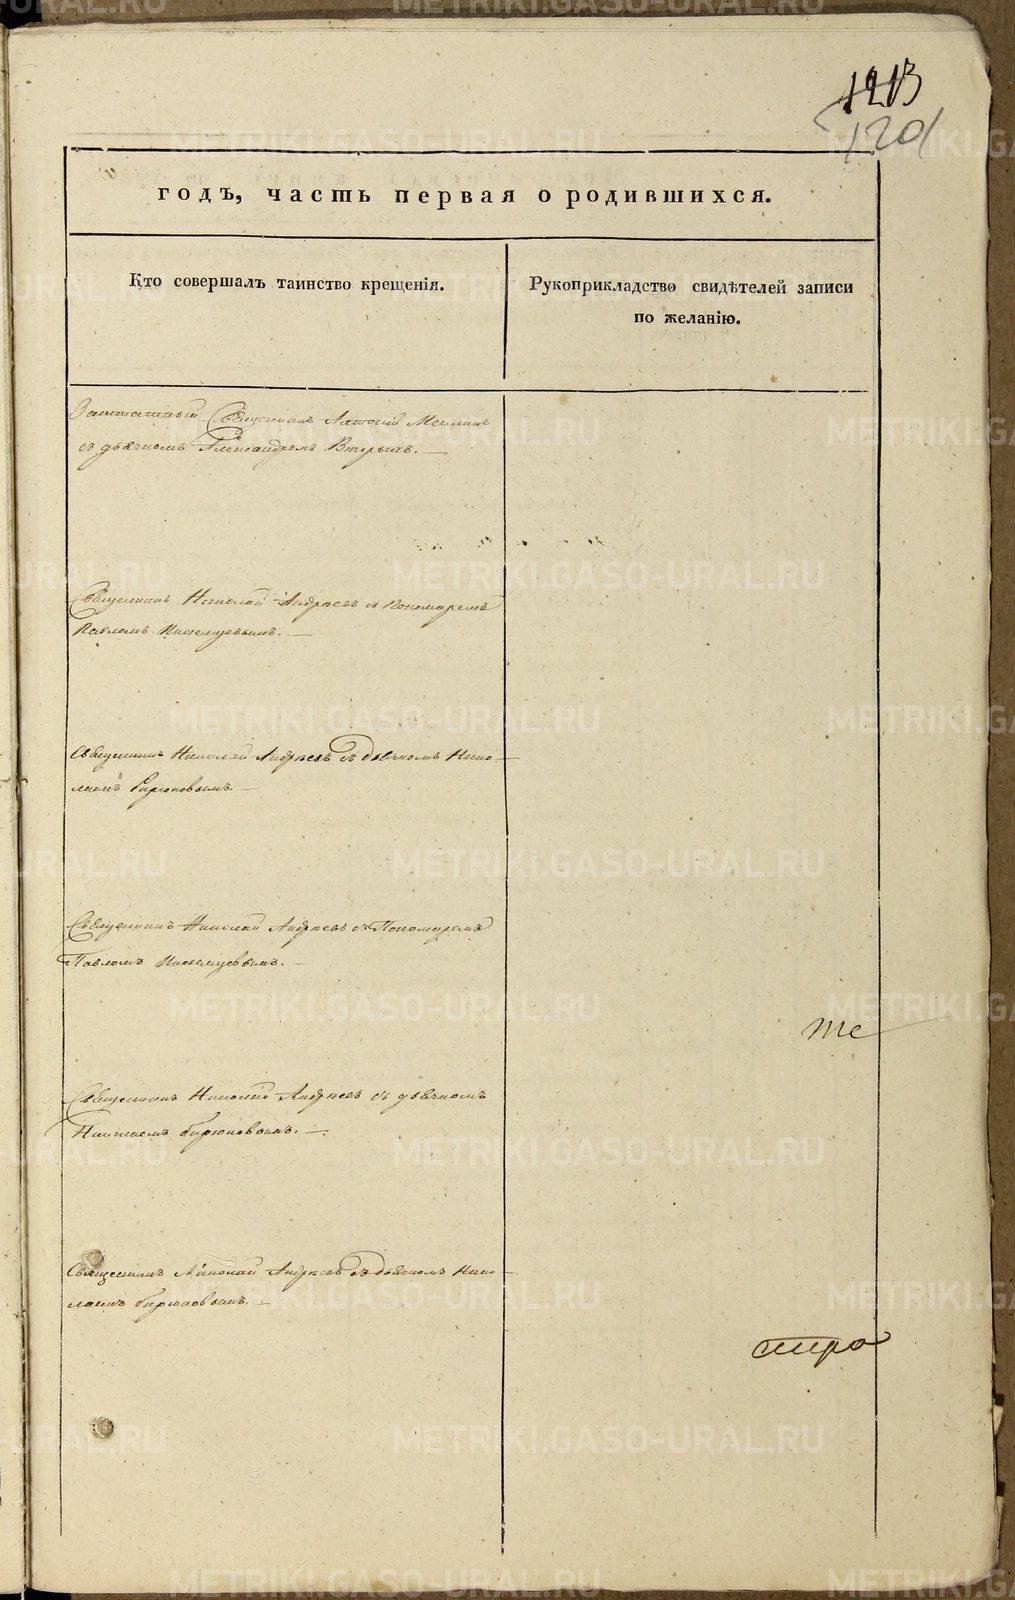 1213
120
годъ, часть первая о родившихся.
Кто совершалъ таинство крещенія.
Рукоприкладство свидѣтелей записи
по желанію.
Заштатный Священникъ Антоній
съ дьячкомъ Александромъ Вторыхъ.
Священникъ Николай Андреевъ съ Пономаремъ
Павломъ Иноземцовымъ.
Священникъ Николай Андреевъ съ дьячкомъ Нико-
лаемъ Бирюковымъ.
Священникъ Николай Андреевъ съ Пономаремъ
Павломъ Иноземцевымъ.
те
Священникъ Николай Андреевъ съ дьячкомъ
Николаемъ Бирюковымъ.
Священникъ Николай Андреевъ съ дьячкомъ Нико-
лаемъ Бирюковымъ.
METRIKI.GASO-URAL.RU